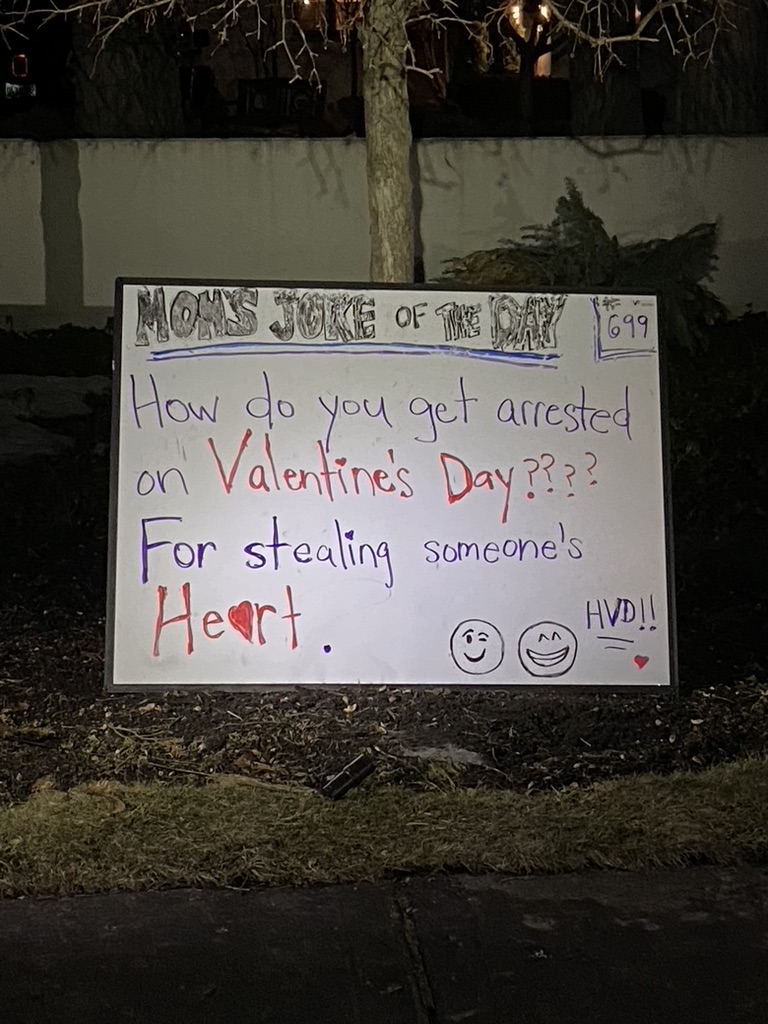 MOM'S JOKE OF THE DAY
# 699
How do you get arrested
on Valentine's Day????
For stealing someone's
Heart.
HVD!!